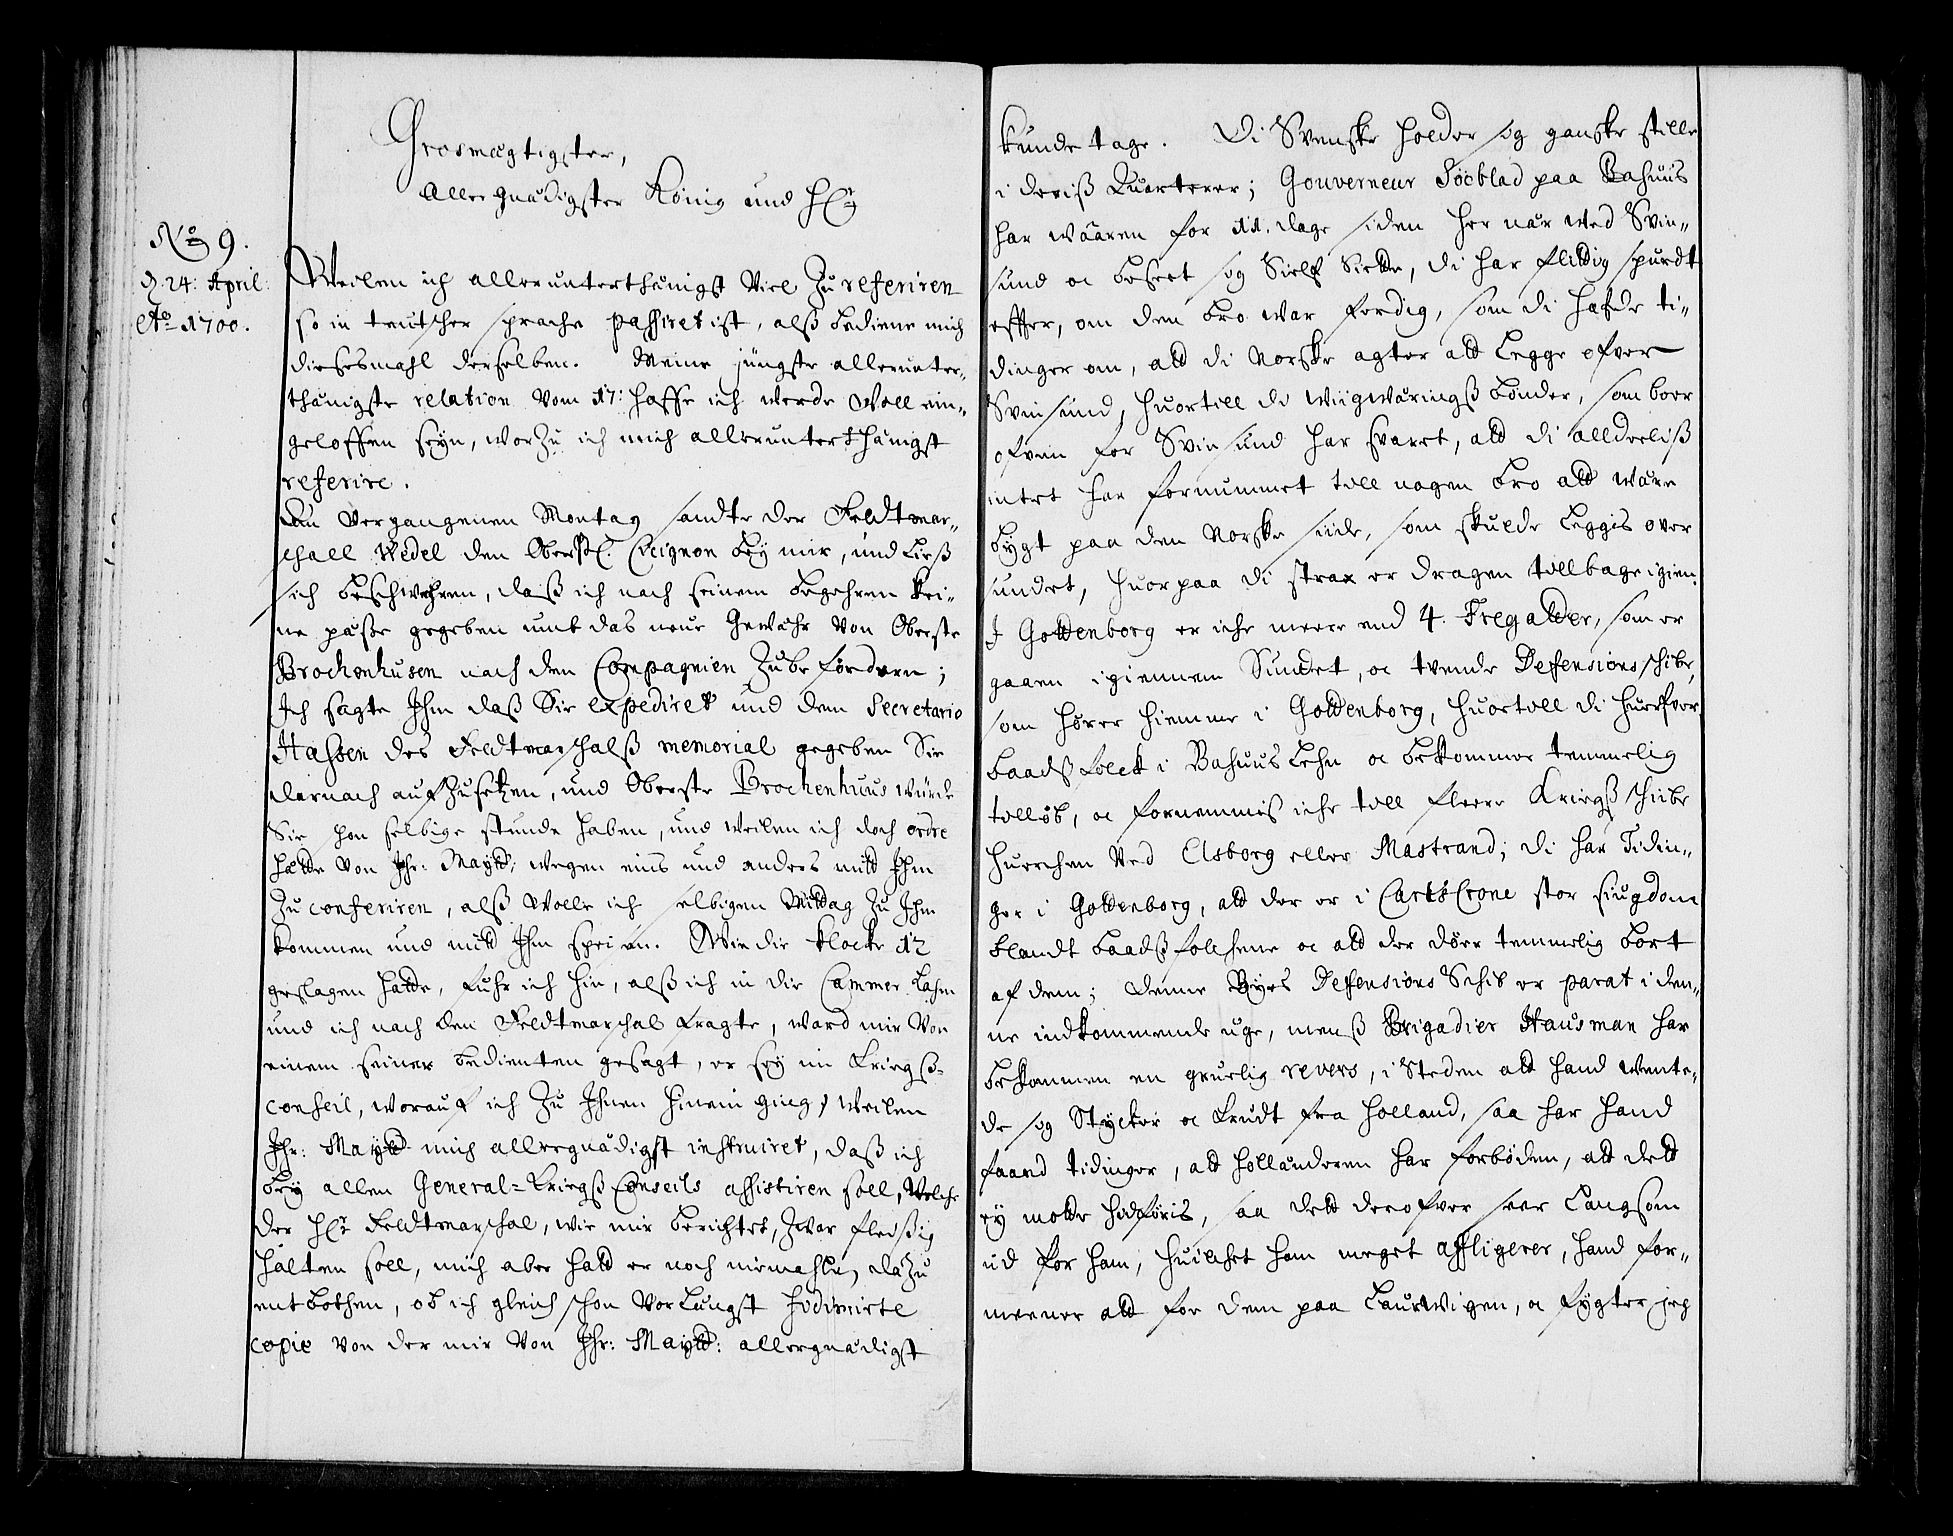 Grosmägtigster,
Allergnädigster König und Hr
No 9.
d. 24: April:
Ao 1700.
Weilen ich allerunterthänigst Viel Zu referiren
so in teutscher sprache passiret ist, alß bediene mich
diesesmahl derselben. Meine jüngste allerunter-
thänigste relation Vom 17: hoffe ich werde Woll ein-
geloffen seyn, worZu ich mich allerunterthänigst
referire.
Den Vergangenen Montag sandte der Feldtmar-
schall Wedel den Oberstl. Cicignon bey mir, und ließ
sich beschwehren, daß ich nach seinem begehren kei-
ne päße gegeben umb das neue Gewähr Von Oberste
Brochenhusen nach den Compagnien Zubefördern;
Ich sagte Ihm daß Sie expediret und dem Secretario
Hassen des Feldtmarschalß memorial gegeben Sie
darnach aufZusetzen, und Oberste Brochenhuus würde
Sie hon selbige stunde haben, und weilen ich doch ordre
hätte Von Ihr: Maytt: wegen eins und anders mitt Ihm
Zu conferiren, alß Wolle ich selbigen Mittag Zu Ihm
kommen und mitt Ihm speisen. Wie die klocke 12
geslagen hatte, fuhr ich hin, alß ich in die Cammer kahm
und ich nach den Feldtmarschal fragte, ward mir Von
einem seiner bedienten gesagt, er sey im Kriegß-
conseil, worauf ich Zu Ihnen hinein ging, Weilen
Ihr: Maytt mich allergnädigst instruiret, daß ich
bey allen General-Kriegß Conseils assistiren soll, Welche
der Hr Feldtmarschal, wie mir berichtet, Zwar fleißig
halten soll, mich aber hatt er noch niemahln daZu
entbothen, ob ich gleich schon Vorlängst fidimirte
copie von der mir Von Ihr: Maytt: allergnädigst
kunde tage. Di Svenske holder sig ganske stille
i deriß Quarterer; Gouverneur Siöblad paa Bahuus
har wäaren for 11. dage siden her när wed Svin-
sund oc beseet sig Sielf Stedde, di har flittig spurdt
effter, om den bro war ferdig, som di hafde ti-
dinger om, att di Norske agter att Legge ofver
Svinsund, huortill di wiigwäringß bönder, som boer
ofven for Svinsund har svaret, att di alldeeliß
intet har fornummet till nogen bro att ware
bygt paa den Norske siide, som skulde Leggis over
sundet, huorpaa di strax er dragen tillbage igien.
I Gottenborg er iche meere end 4. Fregatter, som er
gaaen igiennem Sundet, oc tvende Deffensions schibe,
som hörer hiemme i Gottenborg, huortill di huerfver
baadßfolck i Bahuus Lehn oc bekommer temmelig
tilløb, oc fornemmis iche till fleere Kriegß schibe
huerchen Ved Elsborg eller Mastrand; di har Tidin-
ger i Gottenborg, att der er i Carls Crone stor siugdom
blandt baadßfolchene oc att der döer temmelig bort
af dem; denne Byes Deffensions Schib er parat i den-
ne indkommende uge, menß Brigadier Hausman har
bekommen en gruelig revers, i Steden att hand wente-
de sig Stycker oc Krudt fra Holland, saa har hand
faaed tidinger, att Holländeren har forböden, att dett
ey motte hidföris, saa dett derofver seer Langsom
ud for ham, huilchet ham meget affligerer, hand for-
meener att for dem paa Laurwigen, oc frygter jeg